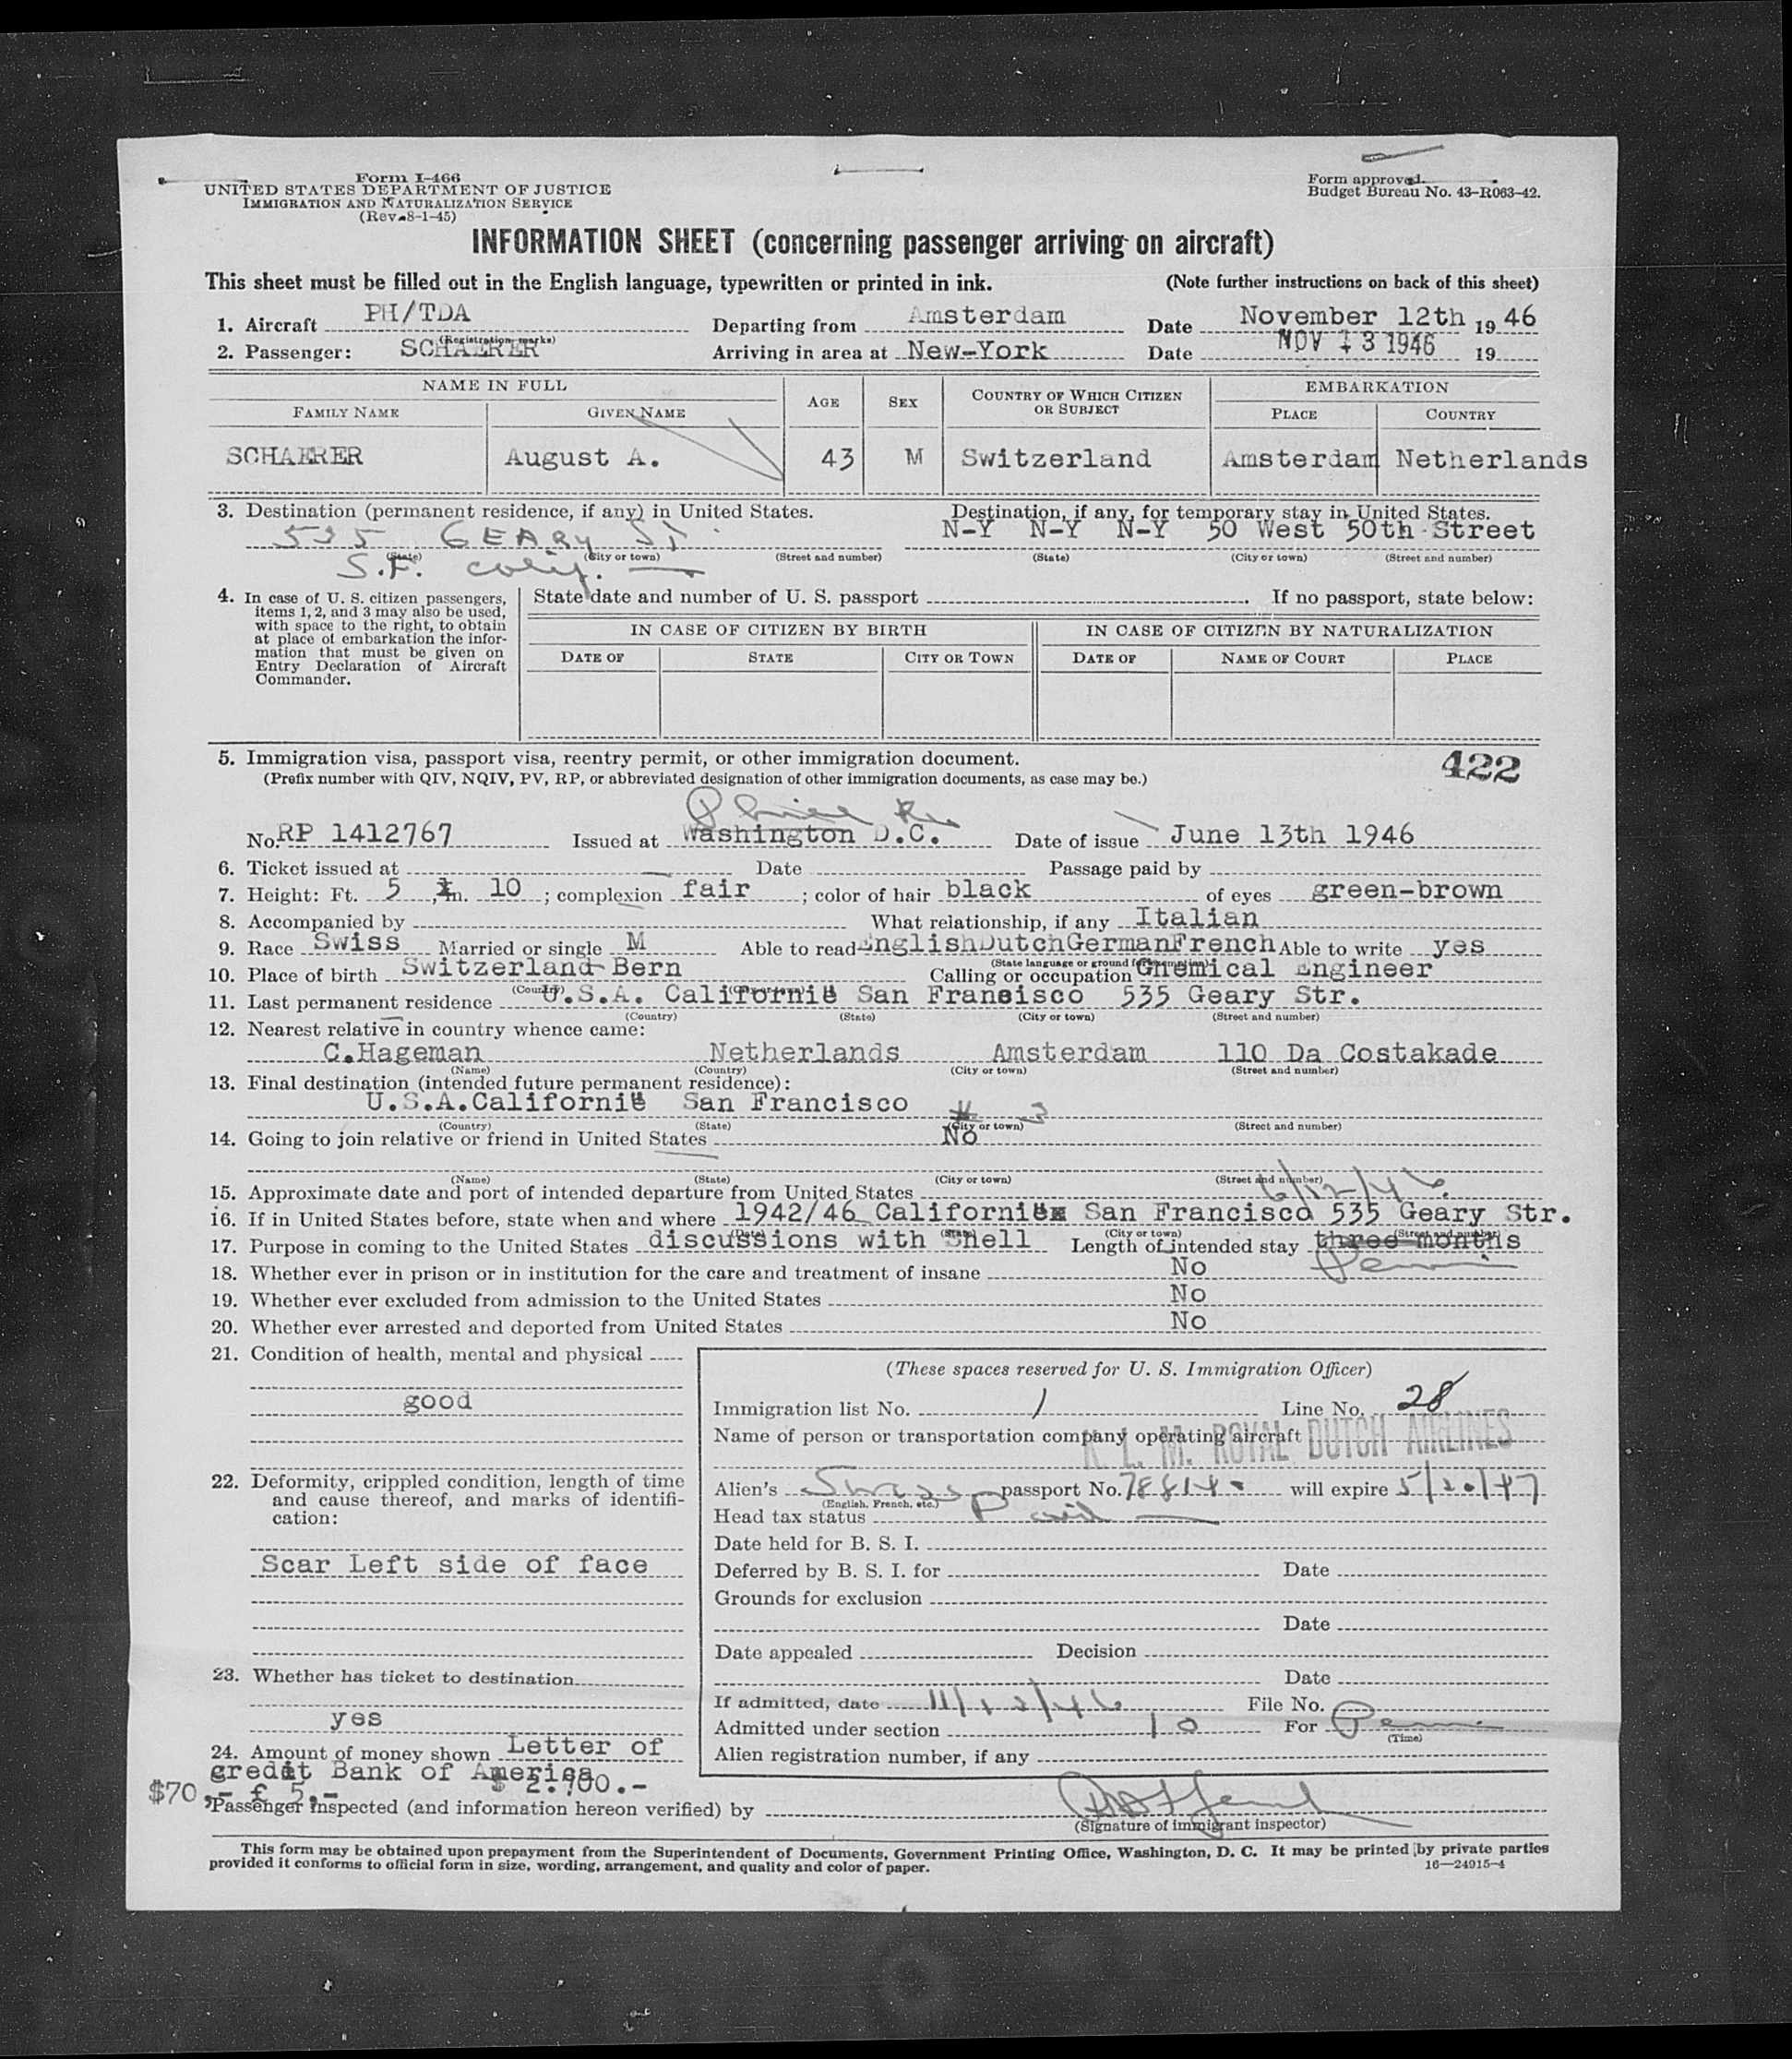 Form I-466
UNITED STATES DEPARTMENT OF JUSTICE
IMMIGRATION AND NATURALIZATION SERVICE
(Rev. 8-1-45)
Form approved.
Budget Bureau No. 43-R063-42.
INFORMATION SHEET (concerning passenger arriving on aircraft)
This sheet must be filled out in the English language, typewritten or printed in ink. (Note further instructions on back of this sheet)
1. Aircraft PH/TDA Departing from Amsterdam Date November 12th 1946
(Registration marks)
2. Passenger: SCHAERER Arriving in area at New-York Date NOV 13 1946 19
NAME IN FULL AGE SEX COUNTRY OF WHICH CITIZEN OR SUBJECT EMBARKATION
FAMILY NAME GIVEN NAME PLACE COUNTRY
SCHAERER August A. 43 M Switzerland Amsterdam Netherlands
3. Destination (permanent residence, if any) in United States. Destination, if any, for temporary stay in United States.
535 GEARY ST. N-Y N-Y N-Y 50 West 50th Street
(State) (City or town) (Street and number) (State) (City or town) (Street and number)
S.F. Calif.
4. In case of U. S. citizen passengers, items 1, 2, and 3 may also be used, with space to the right, to obtain at place of embarkation the information that must be given on Entry Declaration of Aircraft Commander.
State date and number of U. S. passport . If no passport, state below:
IN CASE OF CITIZEN BY BIRTH IN CASE OF CITIZEN BY NATURALIZATION
DATE OF STATE CITY OR TOWN DATE OF NAME OF COURT PLACE
5. Immigration visa, passport visa, reentry permit, or other immigration document. 422
(Prefix number with QIV, NQIV, PV, RP, or abbreviated designation of other immigration documents, as case may be.)
No. RP 1412767 Issued at Washington D.C. Date of issue June 13th 1946
6. Ticket issued at Date Passage paid by
7. Height: Ft. 5, in. 10; complexion fair; color of hair black of eyes green-brown
8. Accompanied by What relationship, if any Italian
9. Race Swiss Married or single M Able to read EnglishDutchGermanFrench Able to write yes
(State language or ground for exemption)
10. Place of birth Switzerland-Bern Calling or occupation Chemical Engineer
(Country) (City or town)
11. Last permanent residence U.S.A. Californië San Francisco 535 Geary Str.
(Country) (State) (City or town) (Street and number)
12. Nearest relative in country whence came:
C.Hageman Netherlands Amsterdam 110 Da Costakade
(Name) (Country) (City or town) (Street and number)
13. Final destination (intended future permanent residence):
U.S.A.Californië San Francisco # 3
(Country) (State) (City or town) (Street and number)
14. Going to join relative or friend in United States No
(Name) (State) (City or town) (Street and number)
15. Approximate date and port of intended departure from United States 6/12/46.
16. If in United States before, state when and where 1942/46 Californië San Francisco 535 Geary Str.
(Date) (State) (City or town) (Street and number)
17. Purpose in coming to the United States discussions with Shell Length of intended stay three months
Perm
18. Whether ever in prison or in institution for the care and treatment of insane No
19. Whether ever excluded from admission to the United States No
20. Whether ever arrested and deported from United States No
21. Condition of health, mental and physical
good
22. Deformity, crippled condition, length of time and cause thereof, and marks of identification:
Scar Left side of face
23. Whether has ticket to destination
yes
24. Amount of money shown Letter of
credit Bank of America $ 2.700.-
$70.- £ 5.-
(These spaces reserved for U. S. Immigration Officer)
Immigration list No. 1 Line No. 28
Name of person or transportation company operating aircraft K. L. M. ROYAL DUTCH AIRLINES
Alien's Swiss passport No. will expire 5/20/47
(English, French, etc.)
Head tax status Paid
Date held for B. S. I.
Deferred by B. S. I. for Date
Grounds for exclusion
Date
Date appealed Decision
Date
If admitted, date 11/13/46 File No.
Admitted under section 10 For Perm
(Time)
Alien registration number, if any
Passenger inspected (and information hereon verified) by
(Signature of immigrant inspector)
This form may be obtained upon prepayment from the Superintendent of Documents, Government Printing Office, Washington, D. C. It may be printed by private parties
provided it conforms to official form in size, wording, arrangement, and quality and color of paper. 16—24915-4